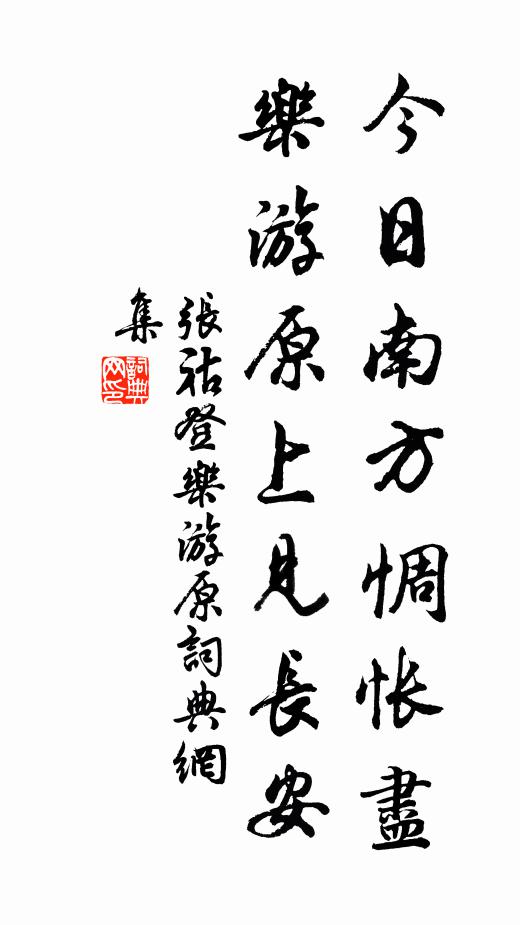 今日南方惆悵盡
樂游原上見長安
張祜登樂游原詞典網
集
詞典
网印